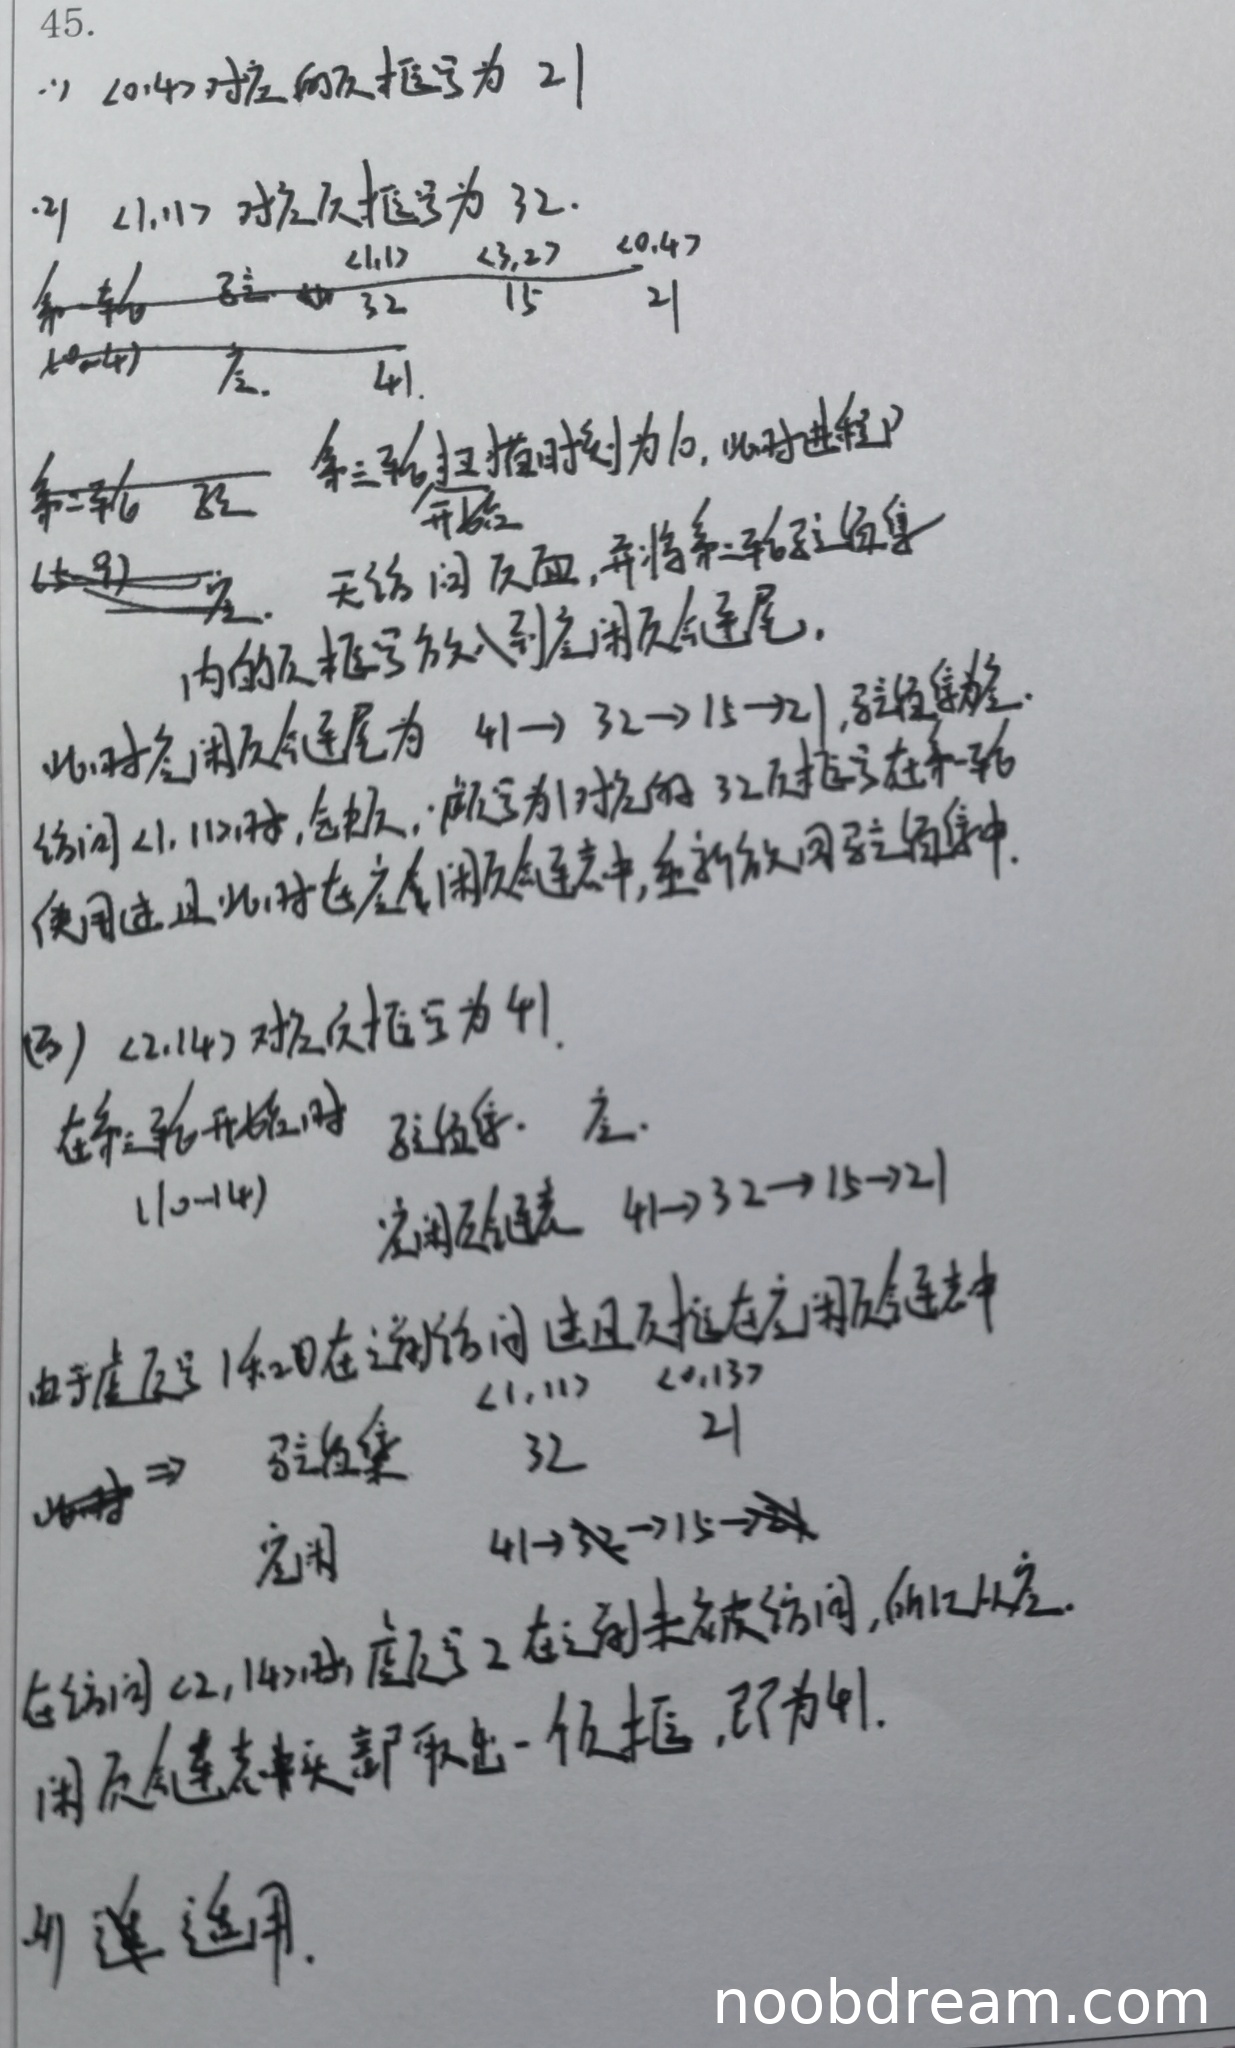 45.
(1) <0,4>对应的页框号为 21
(2) <1,11> 对应页框号为 32.
<1,1> <3,2> <0,4>
第一轮 驻 32 15 21
(0~4) 空. 41.
第二轮 驻 第三轮扫描时刻为10,此时进程P
开始
(5~9) 空. 无访问页面,并将第二轮驻留集
内的页框号放入到空闲页框链尾.
此时空闲页框链尾为 41→32→15→21,驻留集为空.
访问<1,11>时,缺页,虚页号为1对应的 32页框号在第一轮
使用过且此时在空闲页框链表中,重新放回驻留集中.
(3) <2,14> 对应页框号为 41.
在第三轮开始时 驻留集. 空.
(10~14)
空闲页框链表 41→32→15→21
由于虚页号 1和 0在之前访问过且页框在空闲页框链表中
<1,11> <0,13>
此时 ⇒ 驻留集 32 21
空闲 41→32→15→21
在访问<2,14>时,虚页号 2 在之前未被访问,所以从空.
闲页框链表头部取出一个页框,即为41.
(4) 适用.
noobdream.com